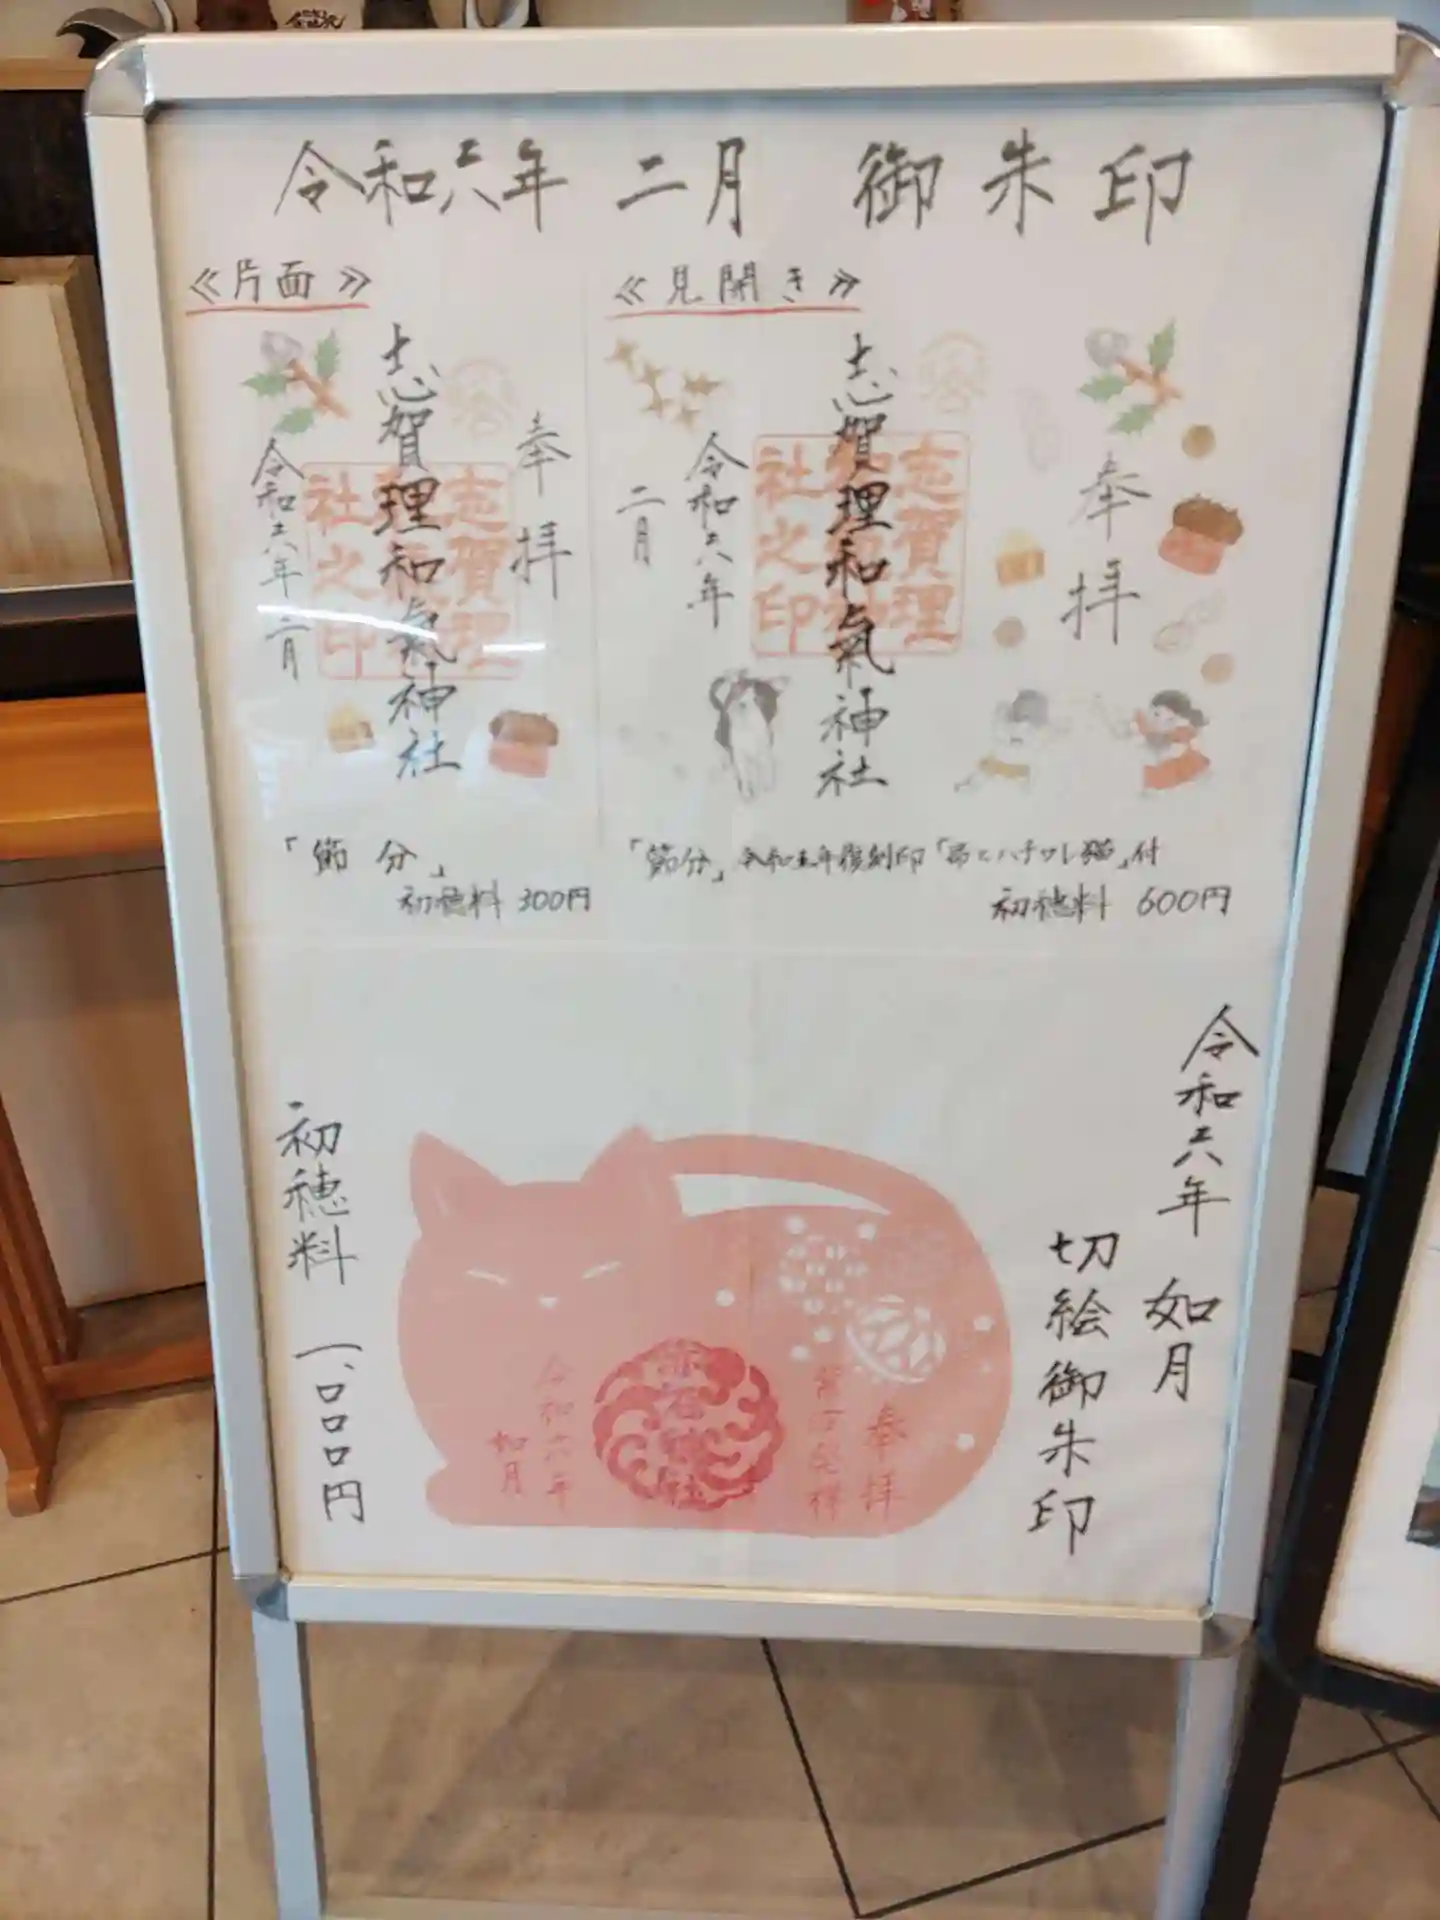 令和六年 二月 御朱印
≪片面≫
奉拝
志賀理和氣神社
志賀理
社之印
令和六年二月
「節分」
初穂料 300円
≪見開き≫
奉拝
志賀理和氣神社
志賀理
社之印
令和六年
二月
「節分」令和五年復刻印「節とハチワレ猫」付
初穂料 600円
令和六年 如月
切絵御朱印
奉拝
赤石神社
令和六年
如月
初穂料 一、〇〇〇円